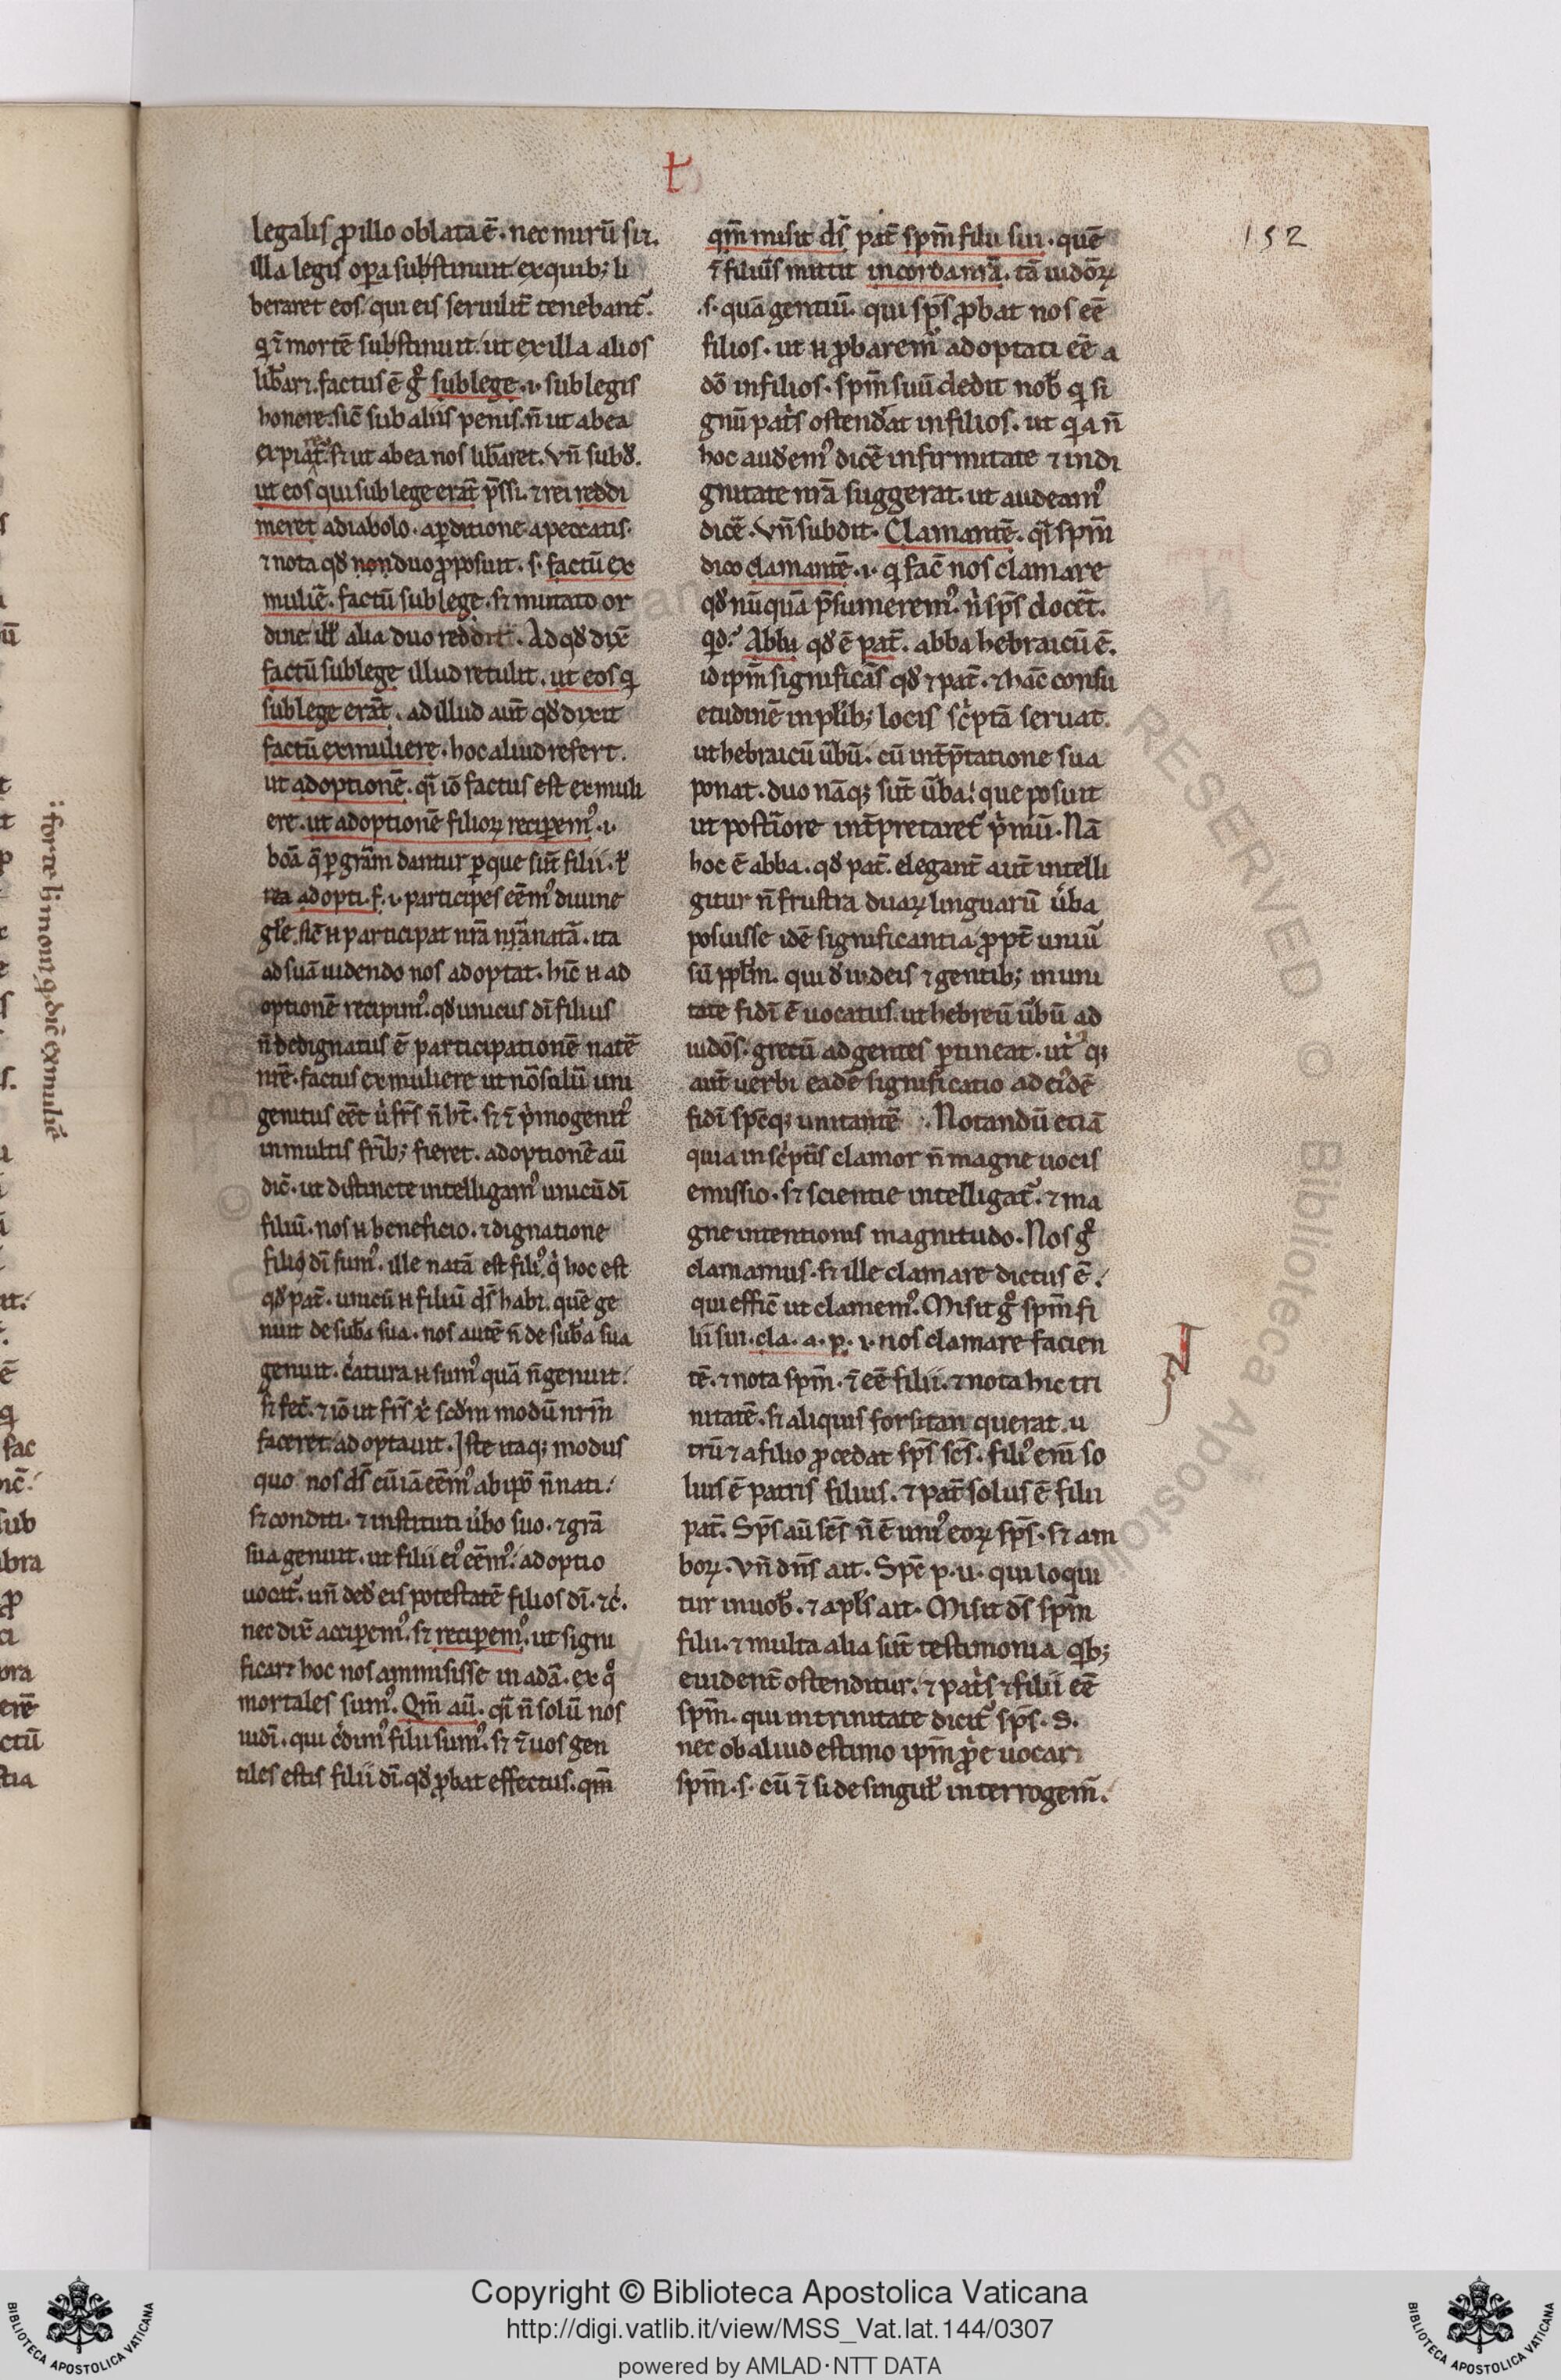 t
152
legalis ꝓ illo oblata ē. nec mirū si ꝛ.
illa legis oꝑa substinuit ex quib; li
beraret eos qui eis seruilit̄ tenebant᷑.
q ⁊̄ mortē substinuit. ut ex illa alios
lib̄ar&. factus ē gͦ sub lege .i. sub legis
honere. sic̄ sub aliis penis. n̄ ut ab ea
expiat᷑. s; ut ab ea nos lib̄aret. Vn̄ subd̄.
ut eos qui sub lege erāt p̄ssi. ⁊ rei reddi
meret a diabolo. a ꝑditione a peccatis.
⁊ nota qd̄ non duo ꝓposuit. s. factū ex
muliē. factū sub lege. s; mutato or
dine ill' alia duo reddit. Ad qd̄ dix̄
factū sub lege illud retulit. ut eos q
sub lege erāt. ad illud aut̄ qd̄ dixit
factū ex muliere. hoc aliud refert.
ut adoptionē. qī iō factus est ex muli
ere. ut adoptionē filioꝝ reciꝑem᷒ .i.
boā q̄ ꝑ gr̄am dantur ꝑ que sūt filii.
adopti. f. i. participes eēm᷒ diuine
gl̄e. sic̄ n participat nr̄a nr̄am natā. ita
ad suā uidendo nos adoptat. hīc n ad
optionē recipim᷒. qd̄ unicus dī filius
n̄ dedignatus ē participationē natē
nrē. factus ex muliere ut nō solū uni
genitus eēt u̇ fr̄s n̄ ht̄. s; ⁊̄ p̍mogenit᷒
in multis frīb; fieret. adoptionē aū
dic̄. ut distincte intelligam᷒ unicū dī
filiū. nos n beneficio. ⁊ dignatione
filii dī sum᷒. ille natā est fili᷒. q̍ hoc est
qd̄ pat̄. unicū n filiū ds̄ hab&. quē ge
nuit de sub̄a sua. nos autē n̄ de sub̄a sua
genuit. c̍atura n sum᷒ quā n̄ genuit.
s; fec̄. ⁊ iō ut fr̄s x̍ scd̄m modū nrm̄
faceret. adoptauit. Iste itaq; modus
quo nos ds̄ cū iā eēm᷒ ab ip̄o n̄ nati.
s; conditi. ⁊ instituti u̇bo suo. ⁊ grā
sua genuit. ut filii ei᷒ eēm᷒. adoptio
uocat᷑. un̄ ded̄ eis potestatē filios dī. ⁊c̄.
nec dix̄ acciꝑem᷒. s; reciꝑem᷒. ut signi
ficar& hoc nos ammisisse in adā. ex qͦ
mortales sum᷒. Qm̄ aū. qī n̄ solū nos
iudī. qui c̍dim᷒ filii sum᷒. s; ⁊̄ uos gen
tiles estis filii dī. qd̄ ꝓbat effectus. qm̄
qm̄ misit ds̄ pat̄ spm̄ filii sui. quē
⁊̄ filius mittit in corda nr̄ā. tā iudōꝝ
.s. quā gentiū. qui sps̄ ꝓbat nos eē
filios. ut n ꝓbarem᷒ adoptati eē a
dō in filios. spm̄ suū dedit nob̄ q si
gnū pat̍s ostend̄at in filios. ut q a n̄
hoc aud̄em᷒ dicē infirmitate ⁊ indi
gnitate nr̄ā suggerat. ut audeam᷒
dicē. Vn̄ subdit. Clamantē. qī spm̄
dico clamantē .i. q fac̄ nos clamare
qd̄ nūquā p̄sumerem᷒. n̍ sps̄ docēt.
qd᷒. Abba qd̄ ē pat̄. abba hebraicū ē.
id ipm̄ significās qd̄ ⁊ pat̄. ⁊ hāc consu
etudinē in plīb; locis sc̍ptā seruat.
ut hebraicū ūbū. cū int̄p̄tatione sua
ponat. duo nāq; sūt ūba. que posuit
ut posti᷒ore int̄pretaret᷑ p̍mū. Nā
hoc ē abba. qd̄ pat̄. elegant̄ aūt intelli
gitur n̄ frustra duaꝝ linguarū u̇ba
posuisse idē significantia ꝓpt̄ uniū
sū ppl̄m. qui d̄ iudeis ⁊ gentib; in uni
tate fidī ē uocatus. ut hebreū ūbū ad
iudōs. grecū ad gentes ꝑtineat. ut̍ q;
aut̄ uerbi eadē significatio ad ei᷒dē
fidī specq; unitatē. Notandū etiā
quia in sc̍ptīs clamor n̄ magne uocis
emissio. s; scientie intelligat᷑. ⁊ ma
gne intentionis magnitudo. Nos gͦ
clamamus. s; ille clamare dictus ē.
qui effic̄ ut clamem᷒. Misit gͦ spm̄ fi
lii sui. cla. a. p. i. nos clamare facien
tē. ⁊ nota spm̄. ⁊̄ eē filii. ⁊ nota hic tri
nitatē. s; aliquis forsitan querat. u
trū ⁊ a filio ꝓcedat sps̄ sc̄s. fili᷒ enī so
lius ē patris filius. ⁊ pat̄ solus ē filii
pat̄. Sps̄ aū sc̄s n̄ ē uni᷒ eoꝝ sps̄. s; am
boꝝ. Vn̄ dn̄s ait. Spc̄ p. u. qui loqui
tur in uob̄. ⁊ apl̄s ait. Misit ds̄ spm̄
filii. ⁊ multa alia sūt testimonia qb;
euident̄ ostenditur. ⁊ pat̍s ⁊ filii eē
spm̄. qui in trinitate dicit᷑ sps̄. S.
nec ob aliud estimo ipm̄ ꝓp̍e uocar&
spm̄ .s. cū ⁊̄ si de singul̄ interrogem̄.
forte li mont; q. dic̄ ex muliē
Copyright © Biblioteca Apostolica Vaticana
http://digi.vatlib.it/view/MSS_Vat.lat.144/0307
powered by AMLAD·NTT DATA
BIBLIOTECA APOSTOLICA VATICANA
BIBLIOTECA APOSTOLICA VATICANA
RESERVED © Biblioteca Apostolic